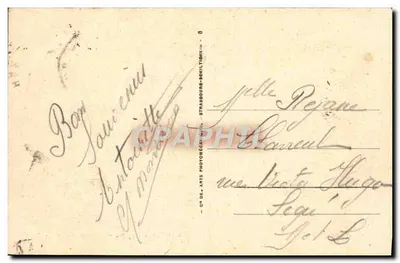 Bon
Souvenir
Antoinette
Cie DES ARTS PHOTOMECANIQUES - STRASBOURG-SCHILTIGHEIM - 8
CARTHAPHILIE
Mlle Réjane
rue Victor Hugo
Segré
M et L